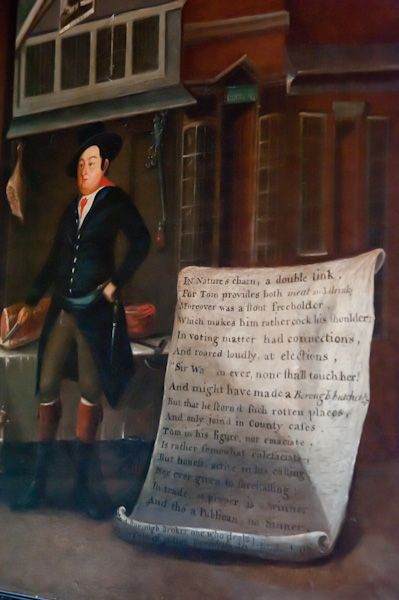 In Nature's chain, a double link,
For Tom provides both meat and drink
Moreover was a stout freeholder,
Which makes him rather cock his shoulder,
In voting matter had connections,
And roared loudly, at elections,
"Sir Wa in ever, none shall touch her!
And might have made a Borough butcher
But that he scorn'd such rotten places,
And only join'd in county cases
Tom in his figure, not emaciate,
Is rather somewhat calefaciate,
But honest, active in his calling
Nor ever given to forestalling
In trade, as proper, is a winner
And tho' a Publican, no Sinner
Borough broker, one who deals